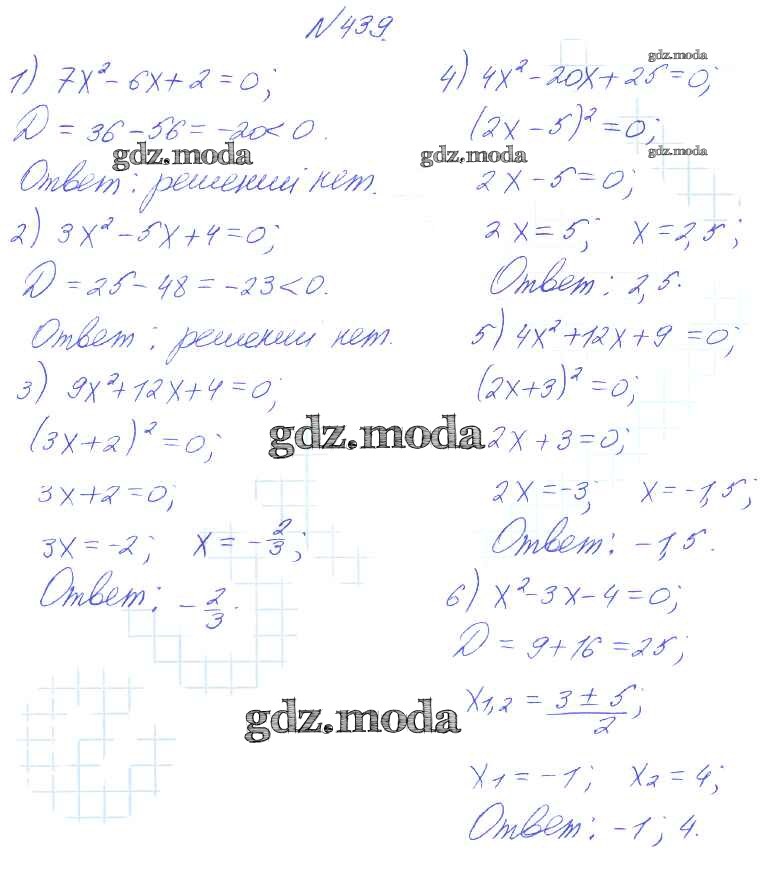 №439.
1) 7x² - 6x + 2 = 0;
D = 36 - 56 = -20 < 0.
Ответ: решений нет.
2) 3x² - 5x + 4 = 0;
D = 25 - 48 = -23 < 0.
Ответ: решений нет.
3) 9x² + 12x + 4 = 0;
(3x + 2)² = 0;
3x + 2 = 0;
3x = -2; x = -2/3;
Ответ: -2/3.
4) 4x² - 20x + 25 = 0;
(2x - 5)² = 0;
2x - 5 = 0;
2x = 5; x = 2,5;
Ответ: 2,5.
5) 4x² + 12x + 9 = 0;
(2x + 3)² = 0;
2x + 3 = 0;
2x = -3; x = -1,5;
Ответ: -1,5.
6) x² - 3x - 4 = 0;
D = 9 + 16 = 25;
x₁,₂ = (3 ± 5)/2;
x₁ = -1; x₂ = 4;
Ответ: -1; 4.
gdz.moda
gdz.moda
gdz.moda
gdz.moda
gdz.moda
gdz.moda